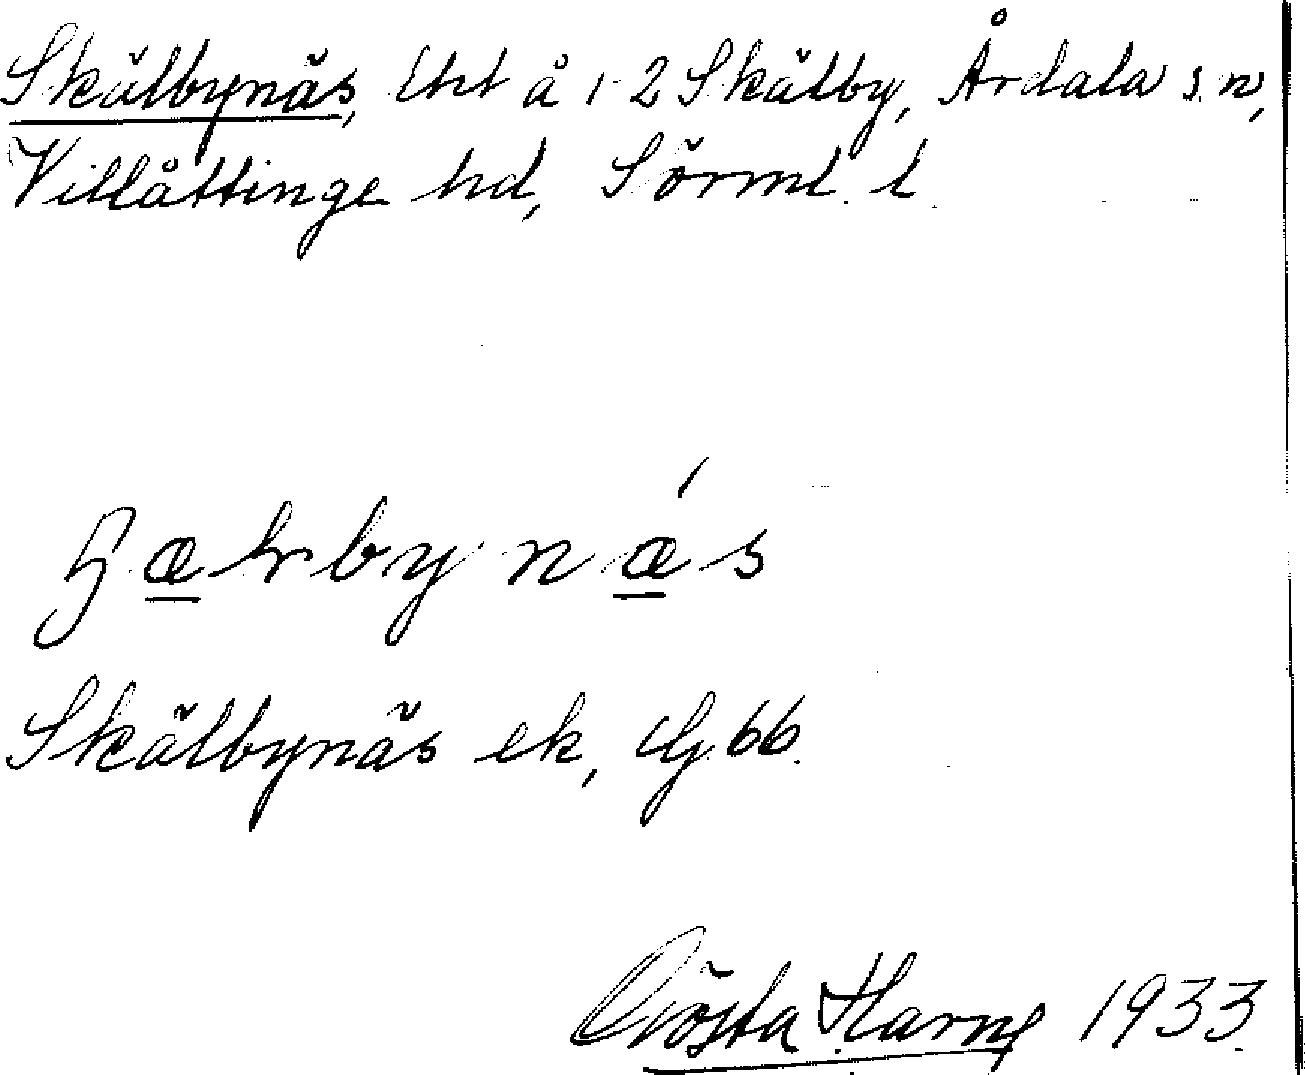 Skälbynäs, lht å 1-2 Skälby, Årdala sn,
Villåttinge hd, Sörml. l.
bynǽs
Skälbynäs ek, G 66.
Gösta Harne 1933.